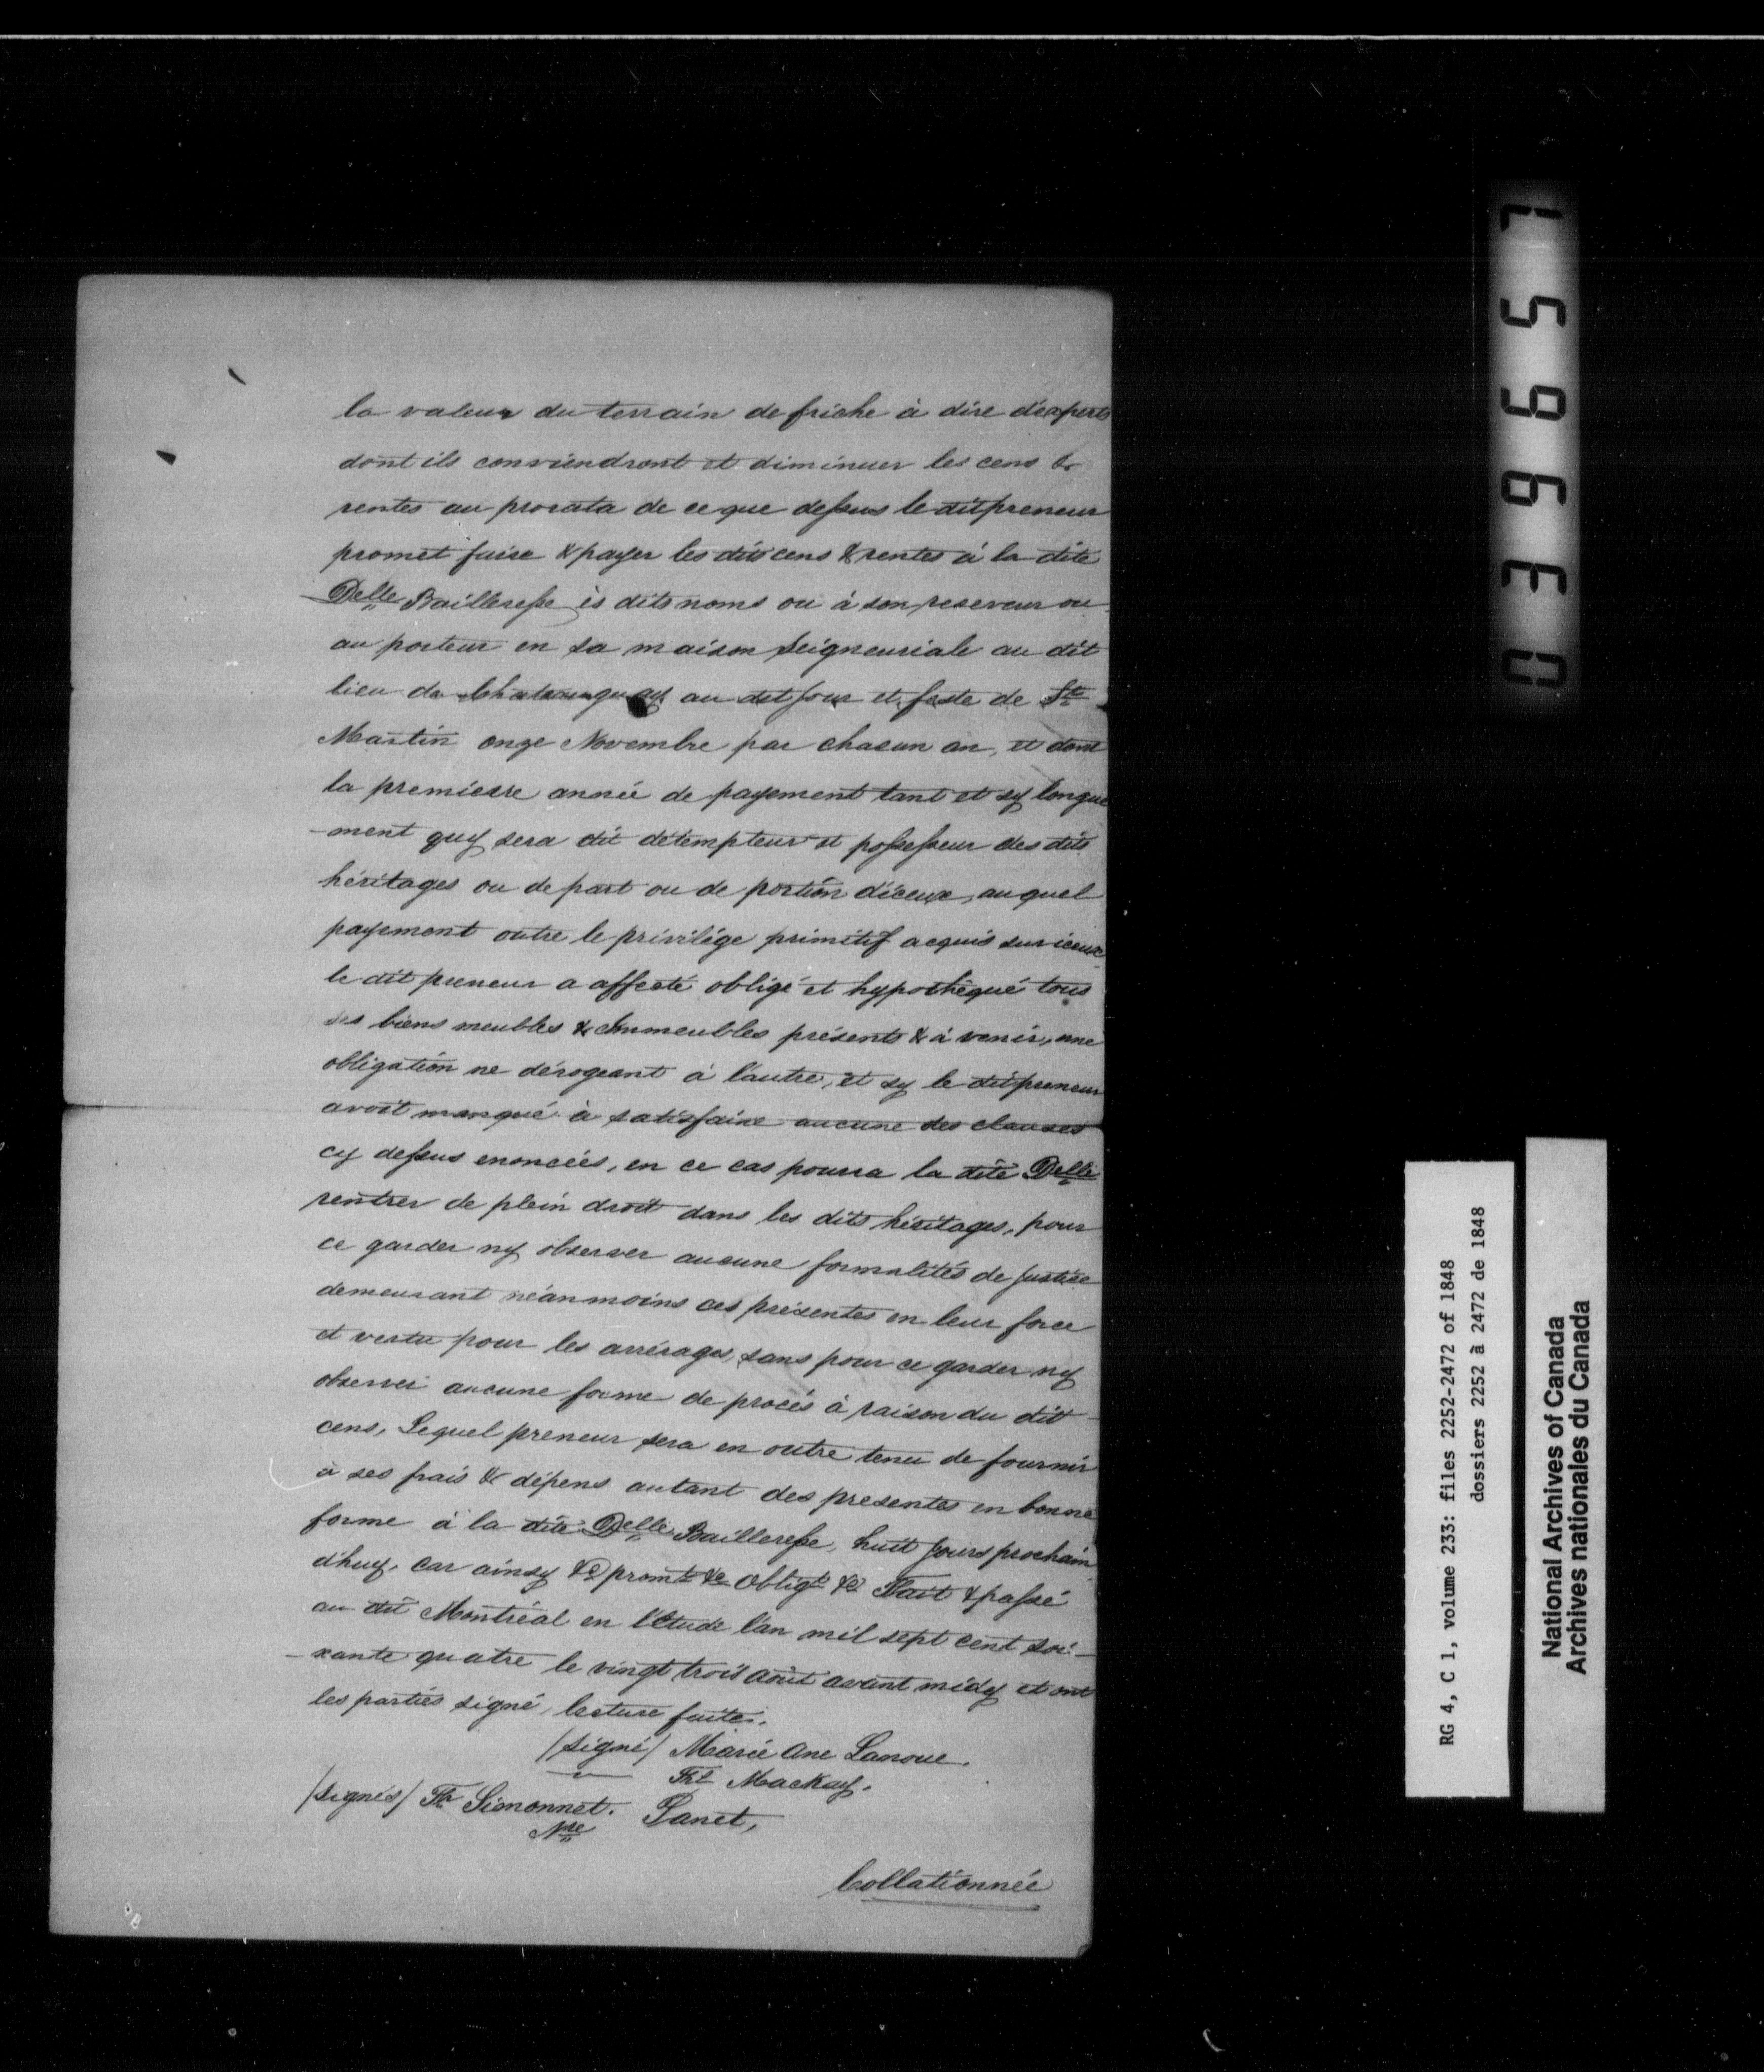 la valeur du terrain de friche à dire d'experts
dont ils conviendront et diminuer les cens &
rentes au prorata de ce que dessus le dit preneur
promet faire & payer les dits cens & rentes à la dite
Delle Bailleresse ès dits noms ou à son receveur ou
au porteur en sa maison Seigneuriale au dit
lieu de Chateauguay au dit jour et feste de St
Martin onze Novembre par chacun an, et dont
la premierre année de payement tant et sy longue
-ment quy sera dit détempteur et possesseur des dits
héritages ou de part ou de portion d'iceux, auquel
payement outre le privilége primitif acquis sur iceux
le dit preneur a affecté obligé et hypothèqué tous
ses biens meubles & Immeubles présents & à venir, une
obligation ne dérogeant à l'autre, et sy le dit preneur
avoit manqué à satisfaire aucune des clauses
cy dessus enoncées, en ce cas pourra la dite Delle
rentrer de plein droit dans les dits héritages, pour
ce garder ny observer aucune formalités de Justice
demeurant néanmoins ces présentes en leur force
et vertu pour les arrérages, sans pour ce garder ny
observer aucune forme de procès à raison du dit
cens, Lequel preneur sera en outre tenu de fournir
à ses frais & dépens autant des presentes en bonne
forme à la dite Delle Bailleresse, huit Jours prochain
d'huy. car ainsy &c promt &c obligt &c Fait & passé
au dit Montréal en l'Etude l'an mil sept cent soi-
-xante quatre le vingt trois août avant midy et ont
les parties signé, lecture faite.
/signé/ Marie Ane Lanoue.
Fs Mackay.
/signés/ Fr Simonnet. Panet,
Nre
Collationnée
039657
RG 4, C 1, volume 233: files 2252-2472 of 1848
dossiers 2252 à 2472 de 1848
National Archives of Canada
Archives nationales du Canada